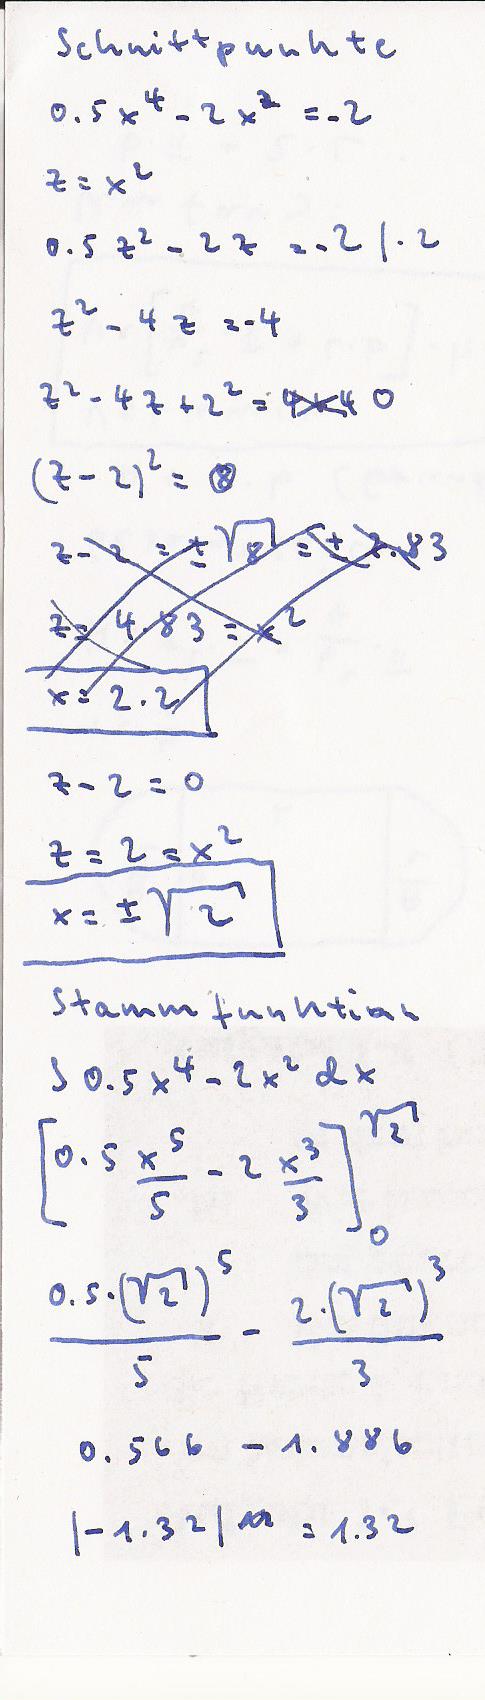 Schnittpunkte
0.5x⁴ - 2x² = -2
z = x²
0.5z² - 2z = -2 | · 2
z² - 4z = -4
z² - 4z + 2² = 4+4 0
(z - 2)² = 0
z - 2 = ±√8 = ± 2.83
z = 4.83 = x²
x = 2.2
z - 2 = 0
z = 2 = x²
x = ±√2
Stammfunktion
∫ 0.5x⁴ - 2x² dx
[0.5 x⁵/5 - 2 x³/3]₀^√2
0.5·(√2)⁵/5 - 2·(√2)³/3
0.566 - 1.886
|-1.32| = 1.32